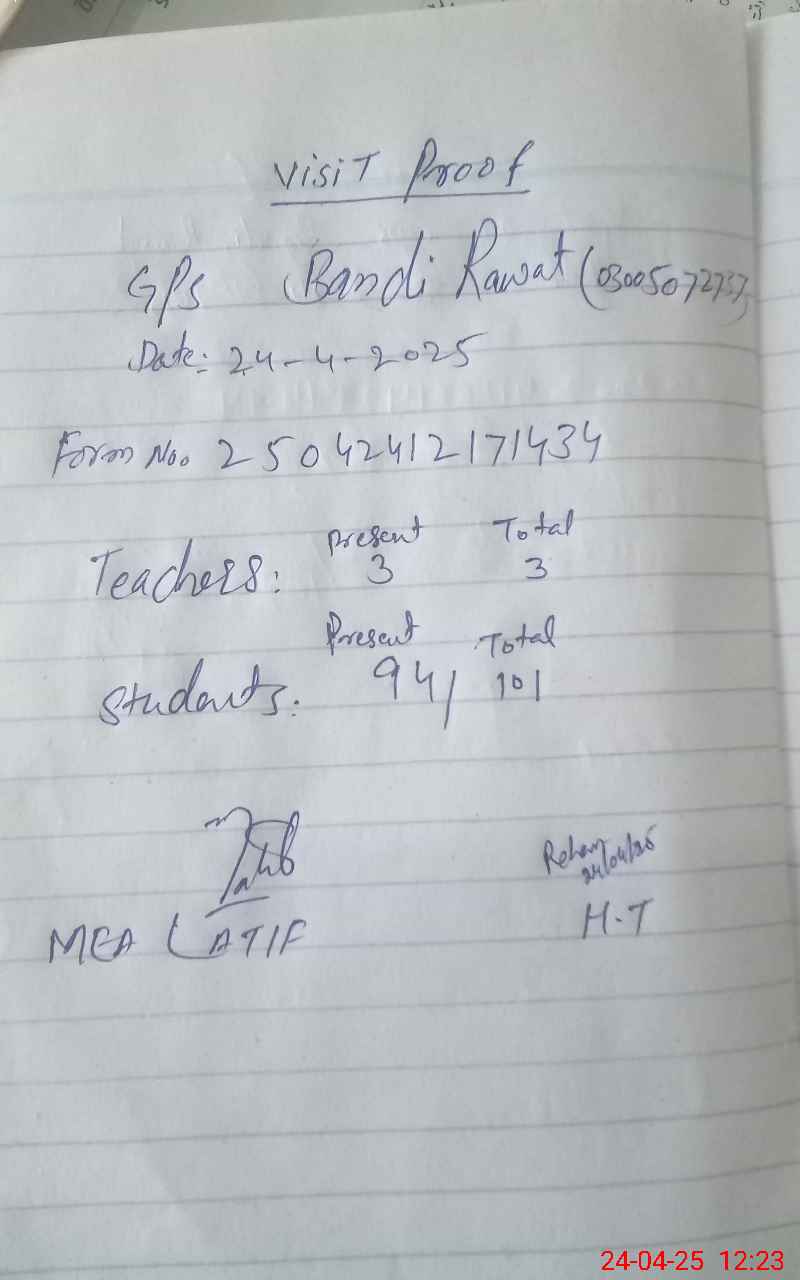 Visit Proof
GPS Bandi Rawat (03005072737)
Date: 24-4-2025
Form No. 25042412171434
Present Total
Teachers: 3 3
Present Total
Students: 94/ 101
Rehan
24/04/25
MEA LATIF H.T
24-04-25 12:23